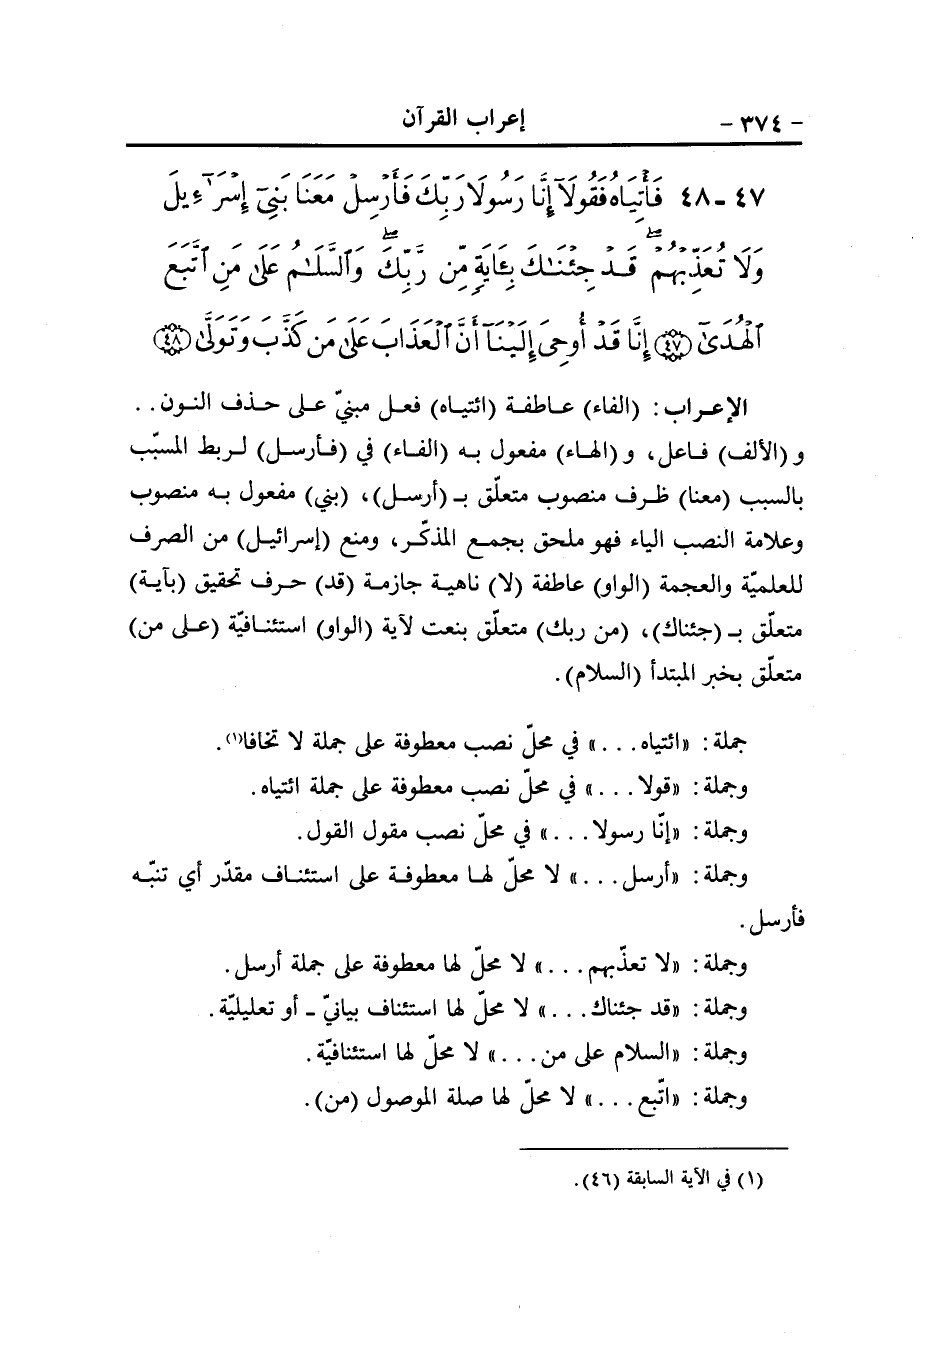 - ٣٧٤ - إعراب القرآن
٤٧ - ٤٨ فَأْتِيَاهُ فَقُولَآ إِنَّا رَسُولَا رَبِّكَ فَأَرْسِلْ مَعَنَا بَنِىٓ إِسْرَٰٓءِيلَ
وَلَا تُعَذِّبْهُمْ ۖ قَدْ جِئْنَٰكَ بِـَٔايَةٍ مِّن رَّبِّكَ ۖ وَٱلسَّلَٰمُ عَلَىٰ مَنِ ٱتَّبَعَ
ٱلْهُدَىٰٓ ﴿٤٧﴾ إِنَّا قَدْ أُوحِىَ إِلَيْنَآ أَنَّ ٱلْعَذَابَ عَلَىٰ مَن كَذَّبَ وَتَوَلَّىٰ ﴿٤٨﴾
الإعراب: (الفاء) عاطفة (ائتياه) فعل مبنيّ على حذف النون . .
و (الألف) فاعل، و (الهاء) مفعول به (الفاء) في (فأرسل) لربط المسبّب
بالسبب (معنا) ظرف منصوب متعلّق بـ (أرسل)، (بني) مفعول به منصوب
وعلامة النصب الياء فهو ملحق بجمع المذكّر، ومنع (إسرائيل) من الصرف
للعلميّة والعجمة (الواو) عاطفة (لا) ناهية جازمة (قد) حرف تحقيق (بآية)
متعلّق بـ (جئناك)، (من ربك) متعلّق بنعت لآية (الواو) استئنافيّة (على من)
متعلّق بخبر المبتدأ (السلام).
جملة: «ائتياه . . .» في محلّ نصب معطوفة على جملة لا تخافا(١).
وجملة: «قولا . . .» في محلّ نصب معطوفة على جملة ائتياه.
وجملة: «إنّا رسولا . . .» في محلّ نصب مقول القول.
وجملة: «أرسل . . .» لا محلّ لها معطوفة على استئناف مقدّر أي تنبّه
فأرسل.
وجملة: «لا تعذّبهم . . .» لا محلّ لها معطوفة على جملة أرسل.
وجملة: «قد جئناك . . .» لا محلّ لها استئناف بيانيّ - أو تعليليّة.
وجملة: «السلام على من . . .» لا محلّ لها استئنافيّة.
وجملة: «اتّبع . . .» لا محلّ لها صلة الموصول (من).
(١) في الآية السابقة (٤٦).